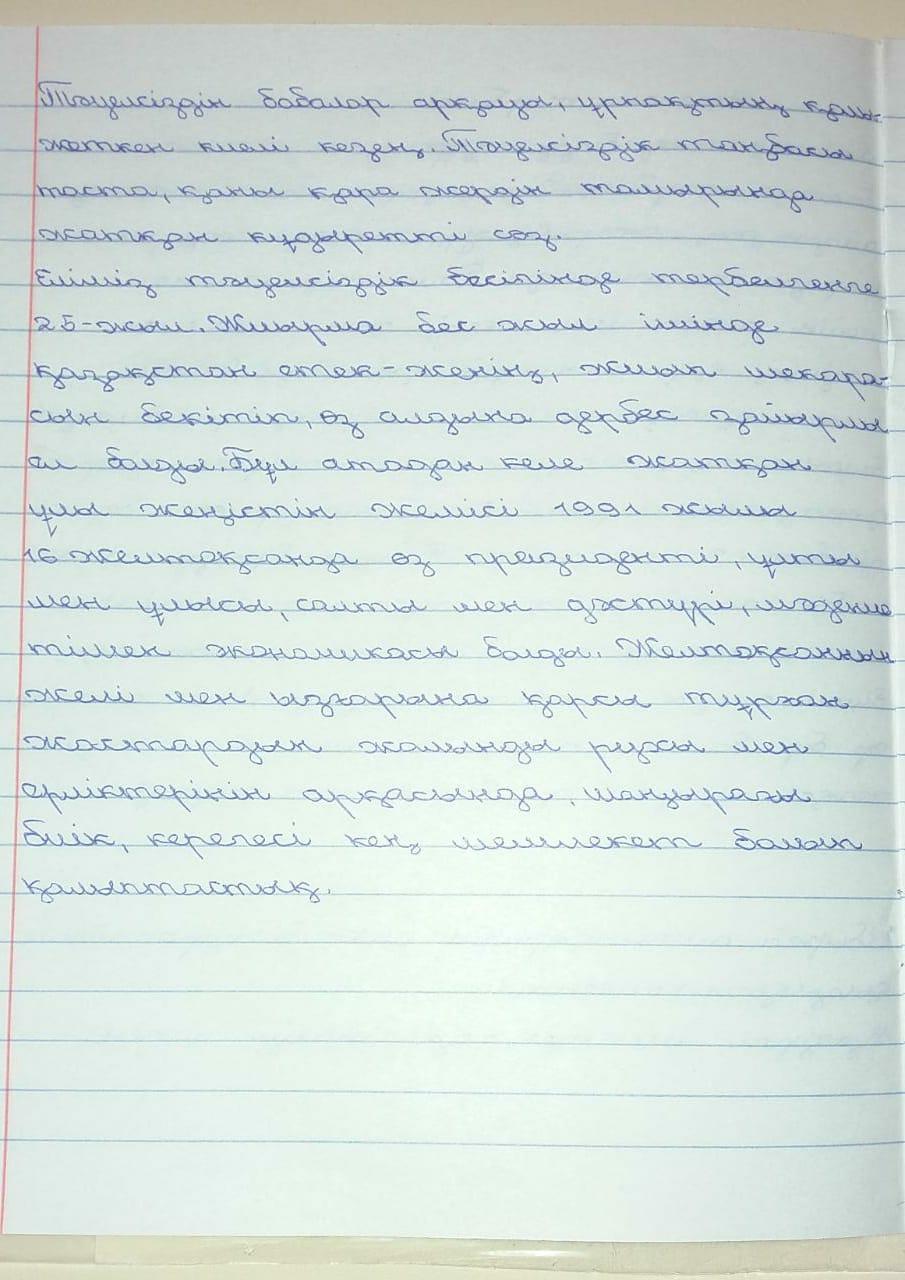 Тәуелсіздін бабалар арқауы, ұрпақтың қолы
жеткен киелі кезең. Тәуелсіздік таңбасы
таста, қаны қара жердін тамырында
жатқан құдыретті сөз.
Еліміз тәуелсіздік бесігінде тербелгенге
25-жыл. Жиырма бес жыл ішінде
қазақстан етек-жеңін, жиып шекара-
сын бекітіп, өз алдына дербес зайырлы
ел болды. Бұл атадан келе жатқан
ұлы жеңістін желісі 1991 жылы
16 желтоқсанда өз президенті, ұлты
мен ұлысы, салты мен дәстүрі, мәдение
тімен экономикасы болды. Желтоқсаннын
желі мен ызғарына қарсы тұрған
жастардын жалынды рухы мен
ерліктерінін арқасында, шаңырағы
биік, керегесі кең, мемлекет болып
қалыптастық.